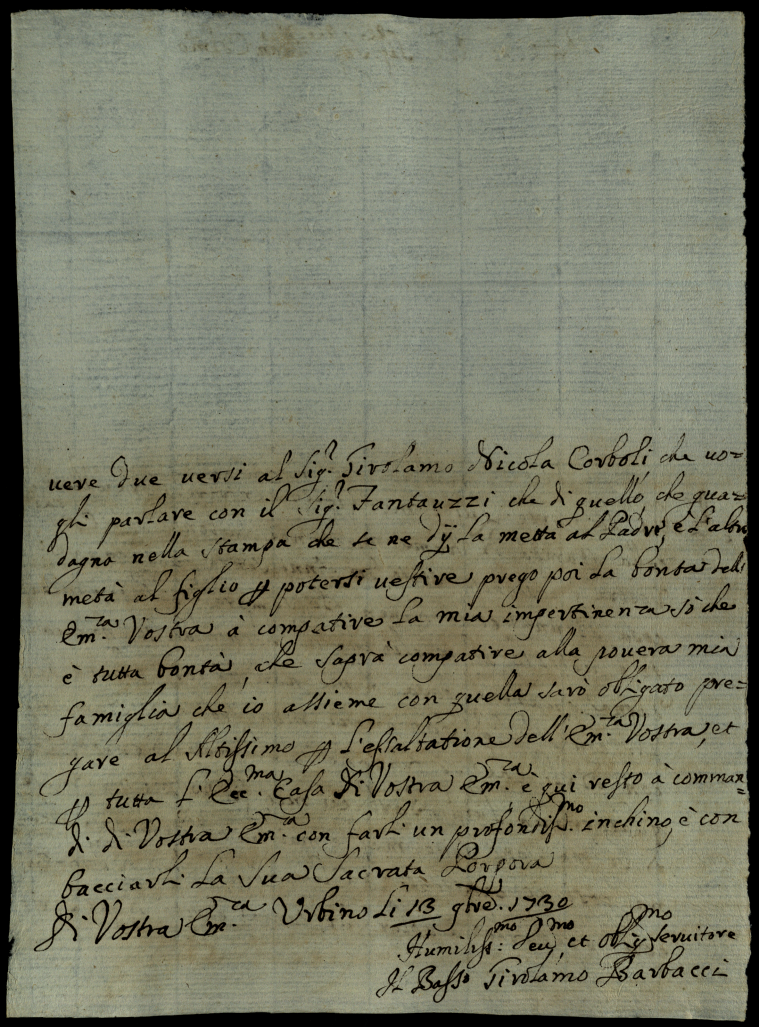 uere due uersi al Sig.r Girolamo Nicola Corboli, che uo=
gli parlare con il Sig.r Fantauzzi che di quello, che gua=
dagna nella stampa che se ne dÿ la metta al Padre, è l'altra
metà al figlio p potersi uestire prego poi la bontà dell'
Em.za Vostra à compatire la mia impertinenza sò che
è tutta bontà, che saprà compatire alla pouera mia
famiglia che io assieme con quella sarò obligato pre=
gare al Altissimo p l'essaltatione dell'Em.za Vostra, et
p tutta l'Ecc.ma Casa di Vostra Em.za è qui resto à comman=
di di Vostra Em.za con farli un profondis.mo inchino, è con
bacciarli la Sua Sacrata Porpora
Di Vostra Em.za Urbino li 13 gbre. 1730
Humiliss.mo Deu.mo, et oblig.mo seruitore
Il Basso Girolamo Barbacci